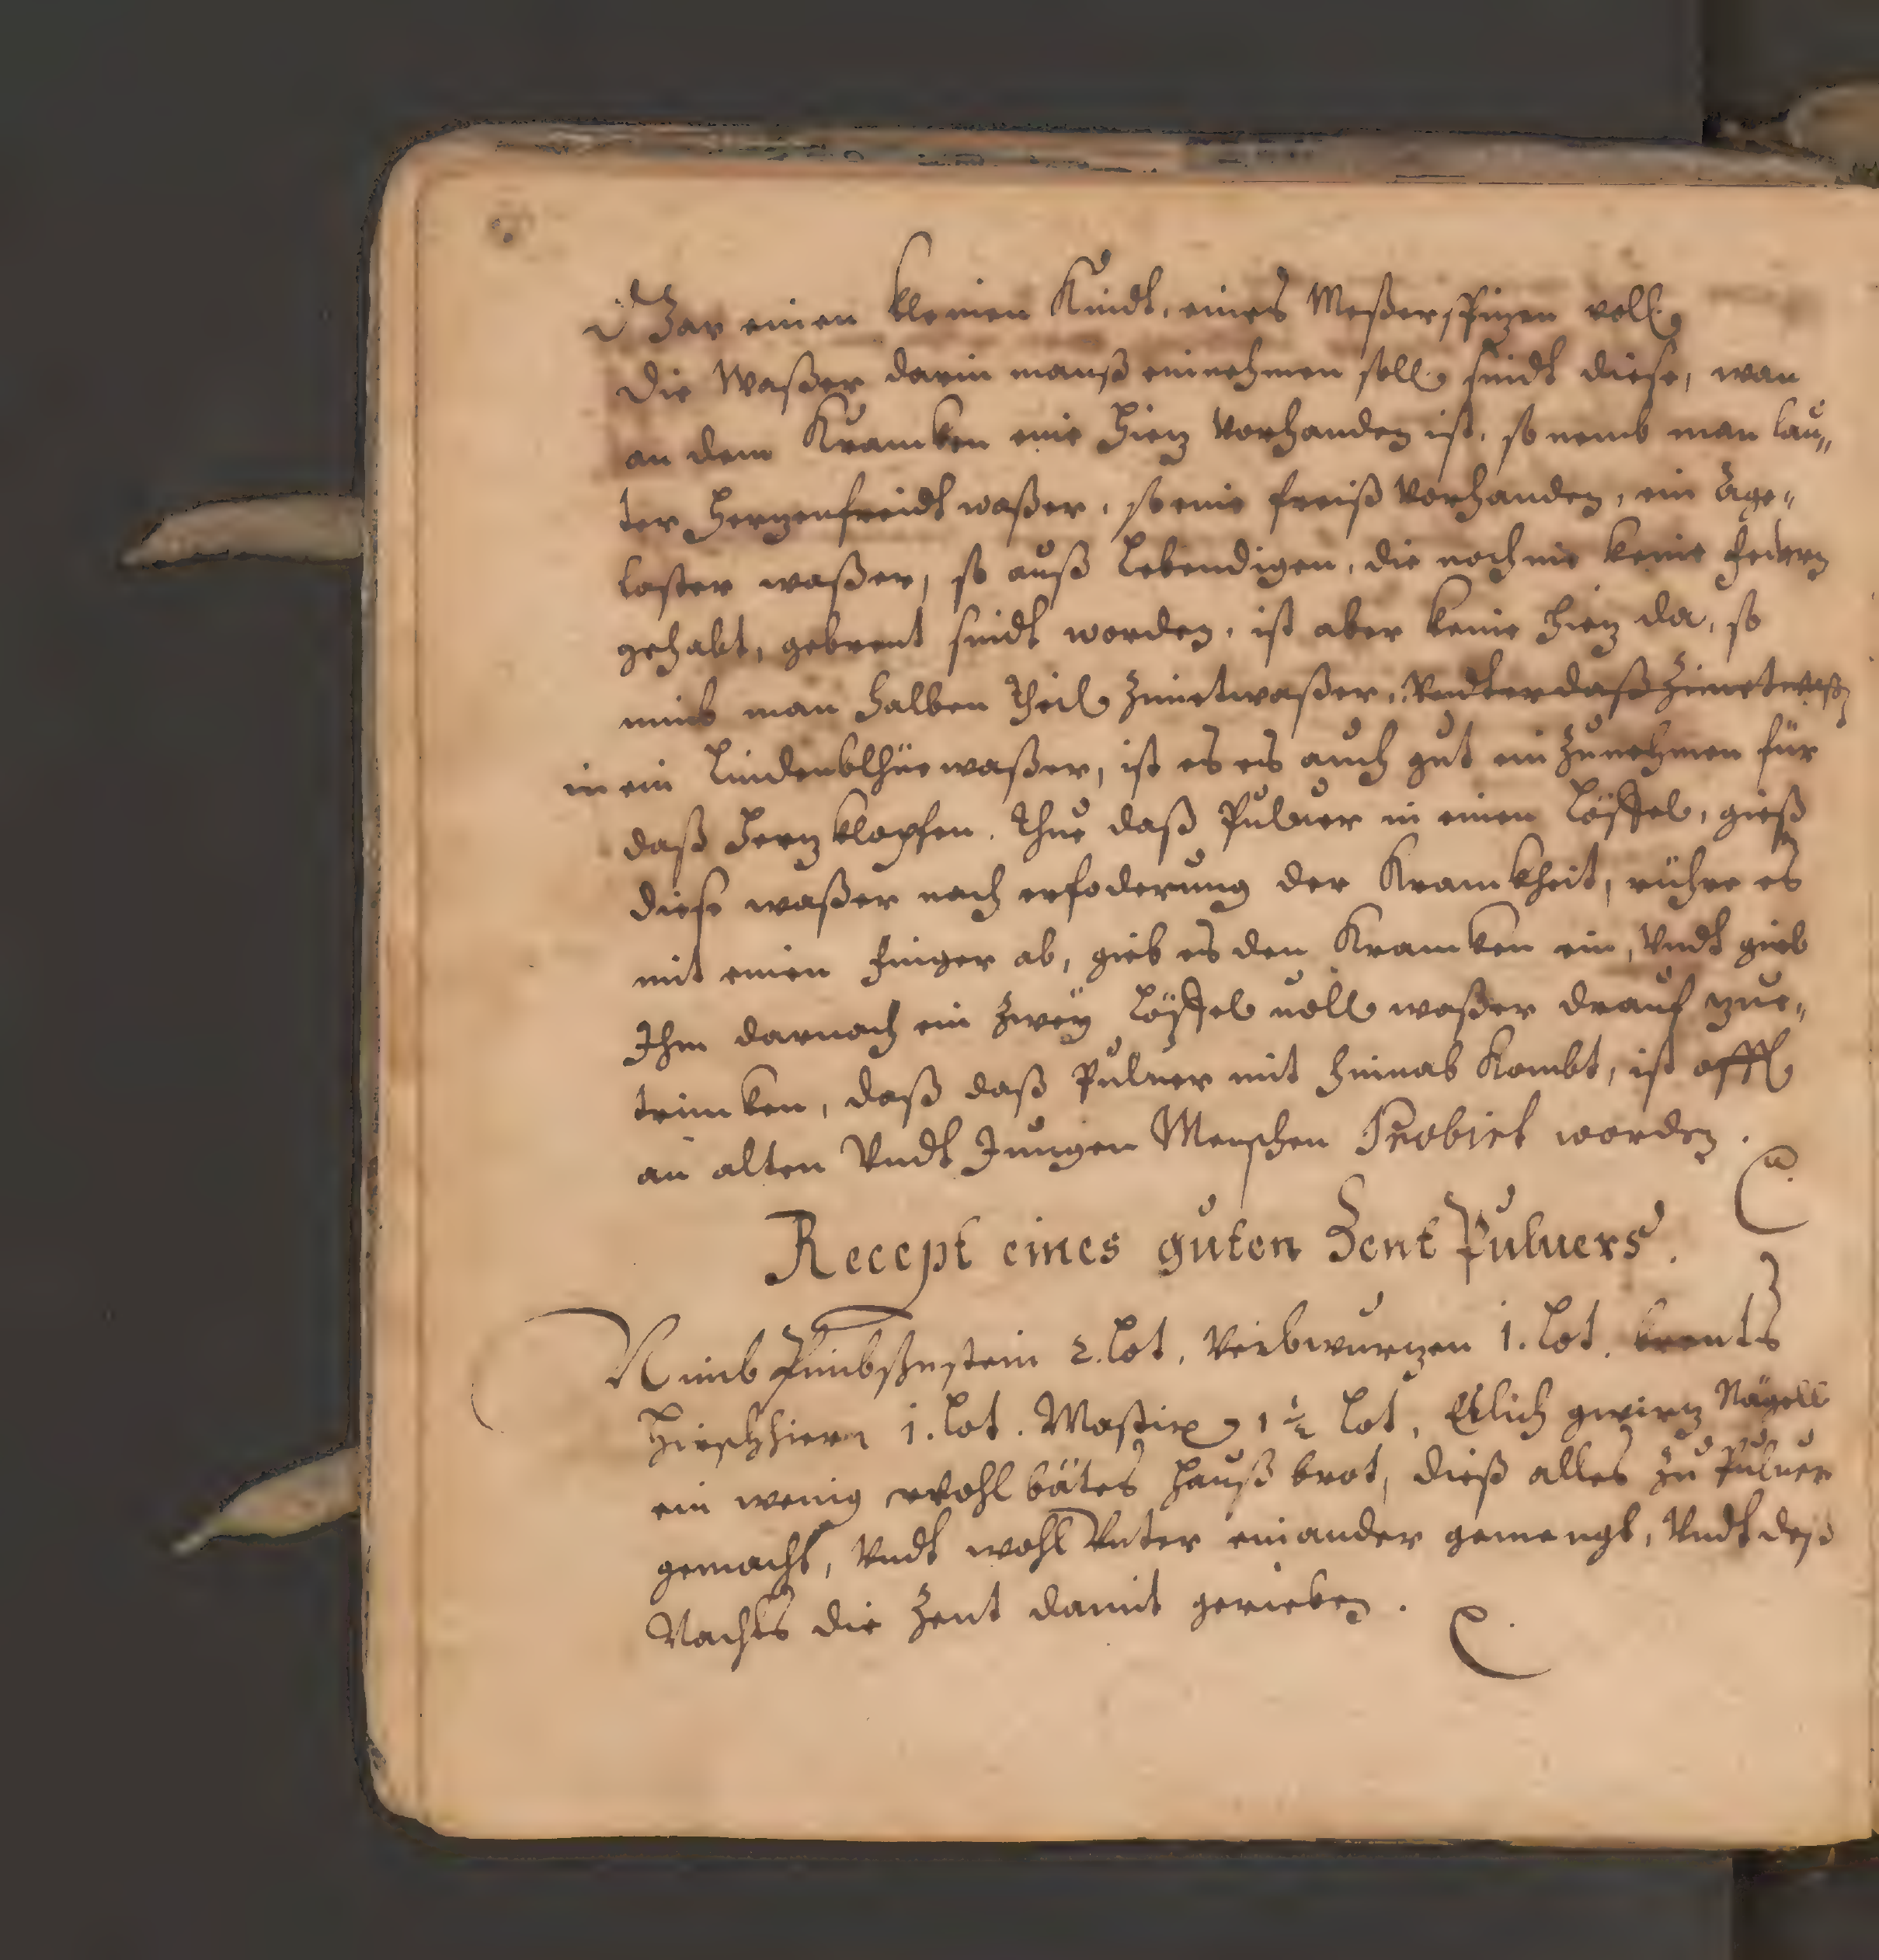 Gar einen kleinen Kindt, eines Meßerspizen voll
Die Waßer darin manß einnehmen soll sindt diese, wan
an dem Krancken eine Hiez vorhanden ist, so nemb man lau„
ter Herzenfreidt waßer, so eine freiß vorhanden, ein Äge„
laster waßer, so auß Lebendigen, die noch nie keine federn
gehabt, gebrent sindt worden, ist aber keine Hiez da, so
nimb man halben theil Zimetwaßer, Vndter daß Zimetwaßer
in ein Lindenblhüe waßer, ist es es auch gut ein Zunehmen für
daß Herz klopfen. Thue daß Pulver in einen Löffel, gieß
diese waßer nach erfoderung der Kranckheit, rühre es
mit einen finger ab, gieb es den Krancken ein, Vndt gieb
Ihm darnach ein Zwey Löffel voll waßer drauf zue„
trincken, daß daß Pulver mit hinnab kombt, ist offt
an alten Vndt Jungen Menschen Probiert worden.
Recept eines guten Zent Pulvers.
Nimb Pimbßnstein 2. Lot, Veilwurzen 1. Lot, brents
Hirschhiern 1. Lot. Mastix 1 ½ Lot, Etlich gwirz Nägell
ein wenig wohl bätes Hauß brot, dieß alles Zu Pulver
gemacht, Vndt wohl Vnter einander gemengt, Vndt deß
Nachts die Zent damit gerieben.